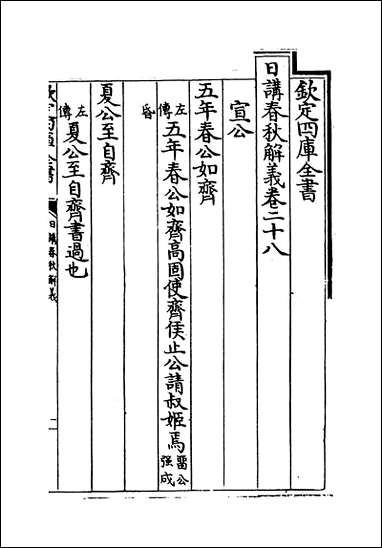 欽定四庫全書
日講春秋解義卷二十八
宣公
五年春公如齊
左傳五年春公如齊高固使齊侯止公請叔姬焉留公強成
昏
夏公至自齊
左傳夏公至自齊書過也
日講春秋解義